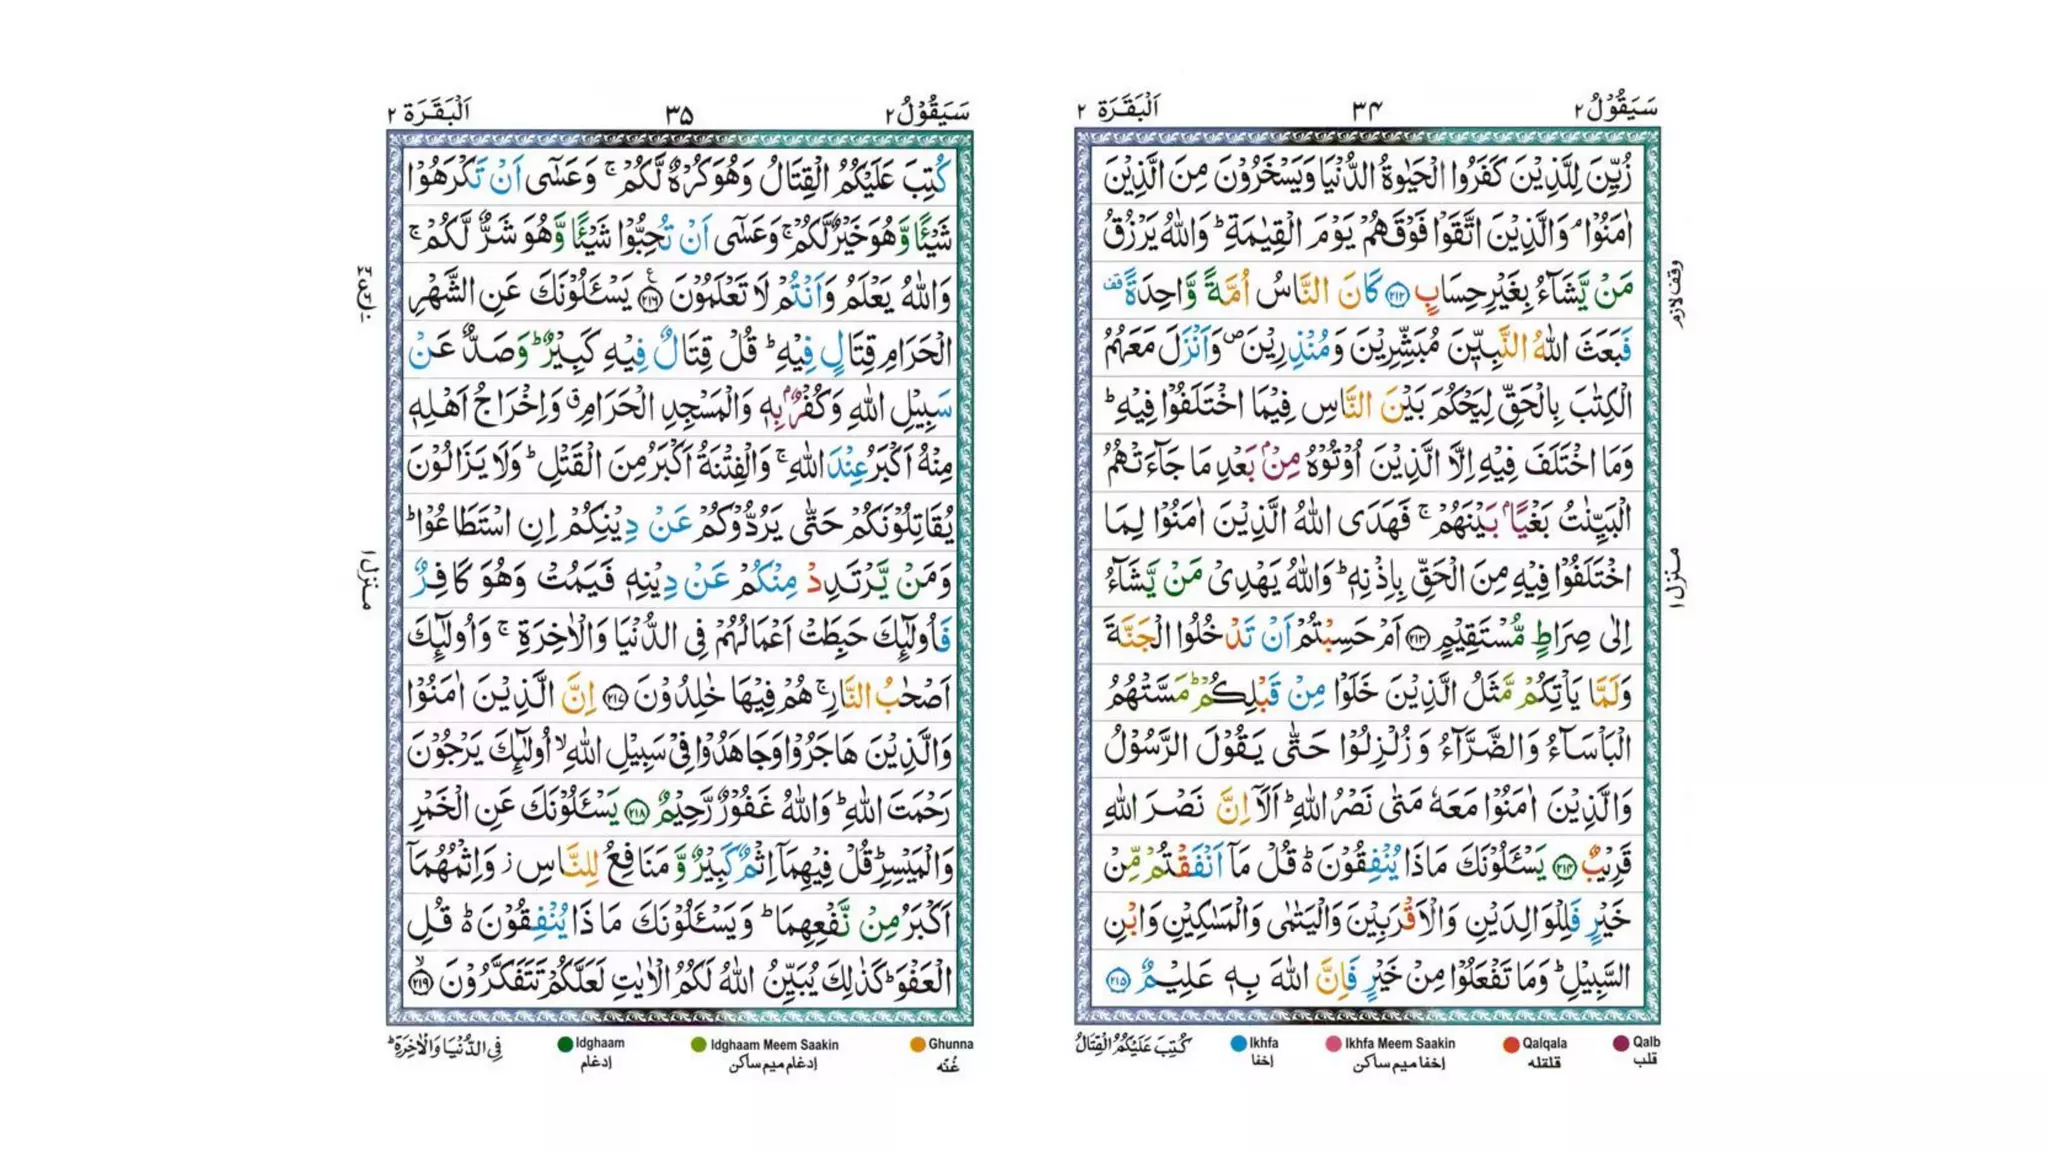 سَيَقُوْلُ ٢
٣٤
اَلْبَقَرَة ٢
زُيِّنَ لِلَّذِيْنَ كَفَرُوا الْحَيٰوةُ الدُّنْيَا وَيَسْخَرُوْنَ مِنَ الَّذِيْنَ
اٰمَنُوْا ۘ وَالَّذِيْنَ اتَّقَوْا فَوْقَهُمْ يَوْمَ الْقِيٰمَةِ ؕ وَاللّٰهُ يَرْزُقُ
مَنْ يَّشَآءُ بِغَيْرِ حِسَابٍ ﴿٢١٢﴾ كَانَ النَّاسُ اُمَّةً وَّاحِدَةً قف
فَبَعَثَ اللّٰهُ النَّبِيّٖنَ مُبَشِّرِيْنَ وَمُنْذِرِيْنَ ص وَاَنْزَلَ مَعَهُمُ
الْكِتٰبَ بِالْحَقِّ لِيَحْكُمَ بَيْنَ النَّاسِ فِيْمَا اخْتَلَفُوْا فِيْهِ ؕ
وَمَا اخْتَلَفَ فِيْهِ اِلَّا الَّذِيْنَ اُوْتُوْهُ مِنْۢ بَعْدِ مَا جَآءَتْهُمُ
الْبَيِّنٰتُ بَغْيًاۢ بَيْنَهُمْ ۚ فَهَدَى اللّٰهُ الَّذِيْنَ اٰمَنُوْا لِمَا
اخْتَلَفُوْا فِيْهِ مِنَ الْحَقِّ بِاِذْنِهٖ ؕ وَاللّٰهُ يَهْدِىْ مَنْ يَّشَآءُ
اِلٰى صِرَاطٍ مُّسْتَقِيْمٍ ﴿٢١٣﴾ اَمْ حَسِبْتُمْ اَنْ تَدْخُلُوا الْجَنَّةَ
وَلَمَّا يَاْتِكُمْ مَّثَلُ الَّذِيْنَ خَلَوْا مِنْ قَبْلِكُمْ ؕ مَسَّتْهُمُ
الْبَاْسَآءُ وَالضَّرَّآءُ وَزُلْزِلُوْا حَتّٰى يَقُوْلَ الرَّسُوْلُ
وَالَّذِيْنَ اٰمَنُوْا مَعَهٗ مَتٰى نَصْرُ اللّٰهِ ؕ اَلَاۤ اِنَّ نَصْرَ اللّٰهِ
قَرِيْبٌ ﴿٢١٤﴾ يَسْـَٔلُوْنَكَ مَاذَا يُنْفِقُوْنَ ؕ قُلْ مَاۤ اَنْفَقْتُمْ مِّنْ
خَيْرٍ فَلِلْوَالِدَيْنِ وَالْاَقْرَبِيْنَ وَالْيَتٰمٰى وَالْمَسٰكِيْنِ وَابْنِ
السَّبِيْلِ ؕ وَمَا تَفْعَلُوْا مِنْ خَيْرٍ فَاِنَّ اللّٰهَ بِهٖ عَلِيْمٌ ﴿٢١٥﴾
وقف لازم
منزل ١
كُتِبَ عَلَيْكُمُ الْقِتَالُ
Ikhfa
إخفا
Ikhfa Meem Saakin
إخفا ميم ساكن
Qalqala
قلقله
Qalb
قلب
سَيَقُوْلُ ٢
٣٥
اَلْبَقَرَة ٢
كُتِبَ عَلَيْكُمُ الْقِتَالُ وَهُوَ كُرْهٌ لَّكُمْ ۚ وَعَسٰٓى اَنْ تَكْرَهُوْا
شَيْـًٔا وَّهُوَ خَيْرٌ لَّكُمْ ۚ وَعَسٰٓى اَنْ تُحِبُّوْا شَيْـًٔا وَّهُوَ شَرٌّ لَّكُمْ ؕ
وَاللّٰهُ يَعْلَمُ وَاَنْتُمْ لَا تَعْلَمُوْنَ ﴿٢١٦﴾ يَسْـَٔلُوْنَكَ عَنِ الشَّهْرِ
الْحَرَامِ قِتَالٍ فِيْهِ ؕ قُلْ قِتَالٌ فِيْهِ كَبِيْرٌ ؕ وَصَدٌّ عَنْ
سَبِيْلِ اللّٰهِ وَكُفْرٌۢ بِهٖ وَالْمَسْجِدِ الْحَرَامِ ق وَاِخْرَاجُ اَهْلِهٖ
مِنْهُ اَكْبَرُ عِنْدَ اللّٰهِ ۚ وَالْفِتْنَةُ اَكْبَرُ مِنَ الْقَتْلِ ؕ وَلَا يَزَالُوْنَ
يُقَاتِلُوْنَكُمْ حَتّٰى يَرُدُّوْكُمْ عَنْ دِيْنِكُمْ اِنِ اسْتَطَاعُوْا ؕ
وَمَنْ يَّرْتَدِدْ مِنْكُمْ عَنْ دِيْنِهٖ فَيَمُتْ وَهُوَ كَافِرٌ
فَاُولٰٓئِكَ حَبِطَتْ اَعْمَالُهُمْ فِى الدُّنْيَا وَالْاٰخِرَةِ ۚ وَاُولٰٓئِكَ
اَصْحٰبُ النَّارِ ۚ هُمْ فِيْهَا خٰلِدُوْنَ ﴿٢١٧﴾ اِنَّ الَّذِيْنَ اٰمَنُوْا
وَالَّذِيْنَ هَاجَرُوْا وَجَاهَدُوْا فِىْ سَبِيْلِ اللّٰهِ ۙ اُولٰٓئِكَ يَرْجُوْنَ
رَحْمَتَ اللّٰهِ ؕ وَاللّٰهُ غَفُوْرٌ رَّحِيْمٌ ﴿٢١٨﴾ يَسْـَٔلُوْنَكَ عَنِ الْخَمْرِ
وَالْمَيْسِرِ ؕ قُلْ فِيْهِمَاۤ اِثْمٌ كَبِيْرٌ وَّمَنَافِعُ لِلنَّاسِ ز وَاِثْمُهُمَاۤ
اَكْبَرُ مِنْ نَّفْعِهِمَا ؕ وَيَسْـَٔلُوْنَكَ مَاذَا يُنْفِقُوْنَ ؕ قُلِ
الْعَفْوَ ؕ كَذٰلِكَ يُبَيِّنُ اللّٰهُ لَكُمُ الْاٰيٰتِ لَعَلَّكُمْ تَتَفَكَّرُوْنَ ۙ ﴿٢١٩﴾
منزل ١
فِى الدُّنْيَا وَالْاٰخِرَةِ ؕ
Idghaam
إدغام
Idghaam Meem Saakin
إدغام ميم ساكن
Ghunna
غُنّه